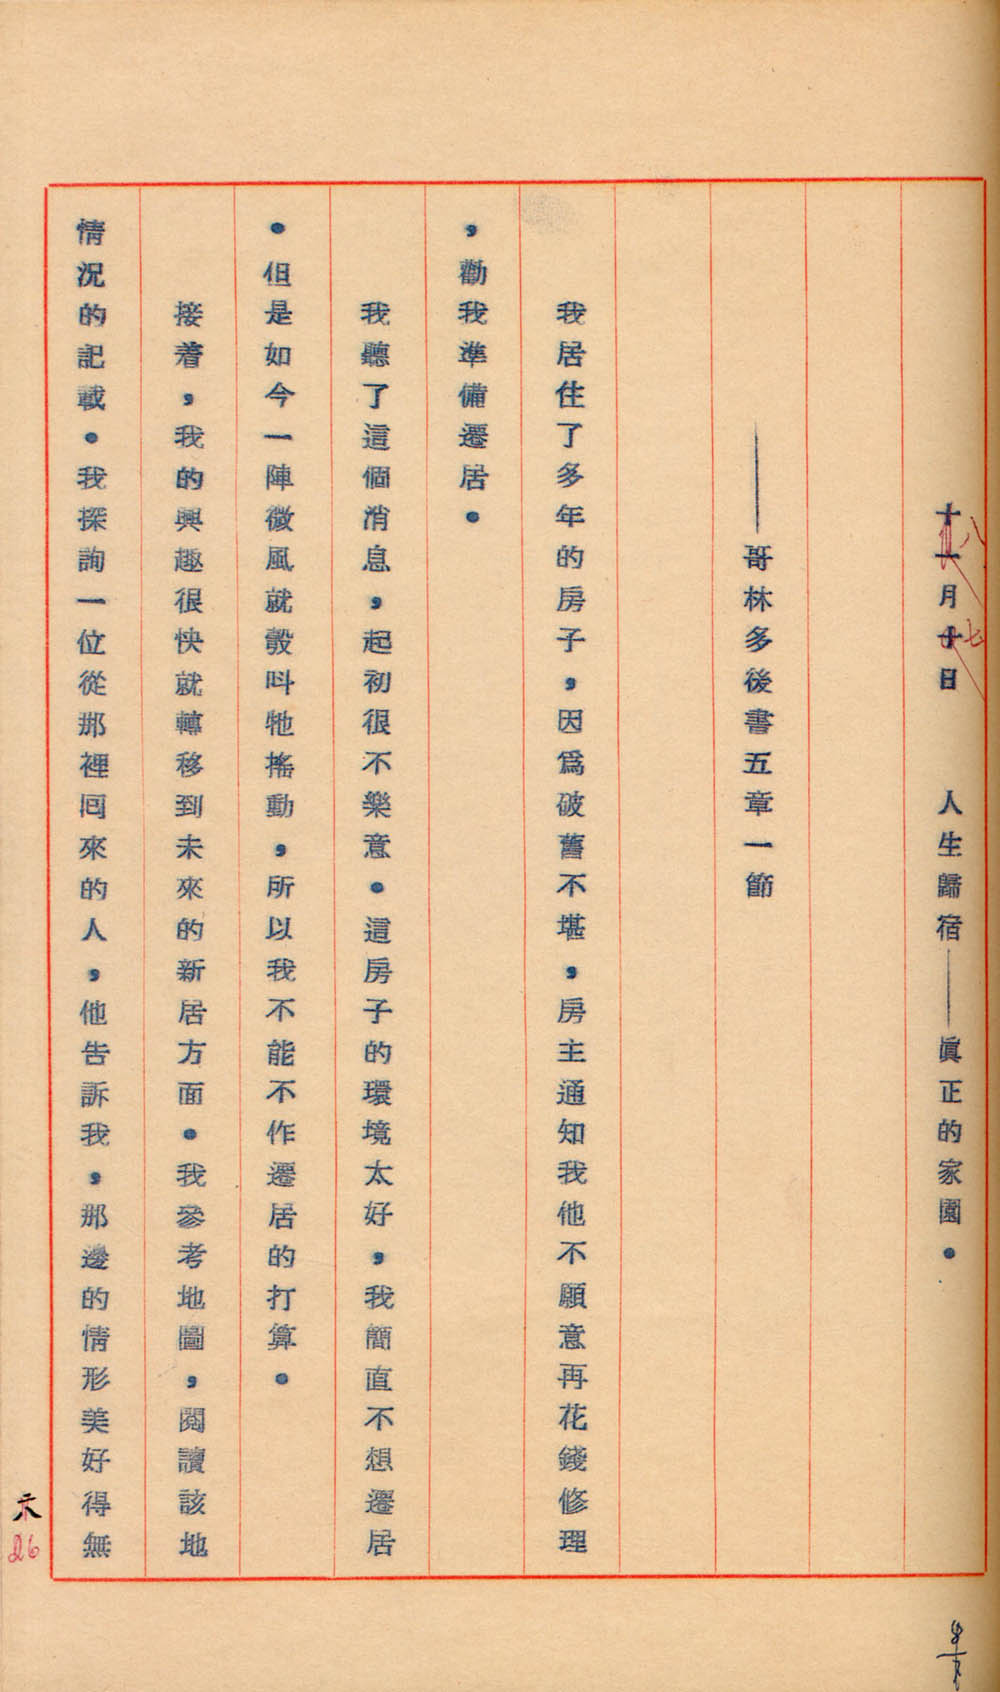 十一月十日　　人生歸宿——眞正的家園。
八
七
——哥林多後書五章一節
我居住了多年的房子，因爲破舊不堪，房主通知我他不願意再花錢修理
，勸我準備遷居。
我聽了這個消息，起初很不樂意。這房子的環境太好，我簡直不想遷居
。但是如今一陣微風就彀呌牠搖動，所以我不能不作遷居的打算。
接着，我的興趣很快就轉移到未來的新居方面。我參考地圖，閱讀該地
情況的記載。我探詢一位從那裡囘來的人，他告訴我，那邊的情形美好得無
26